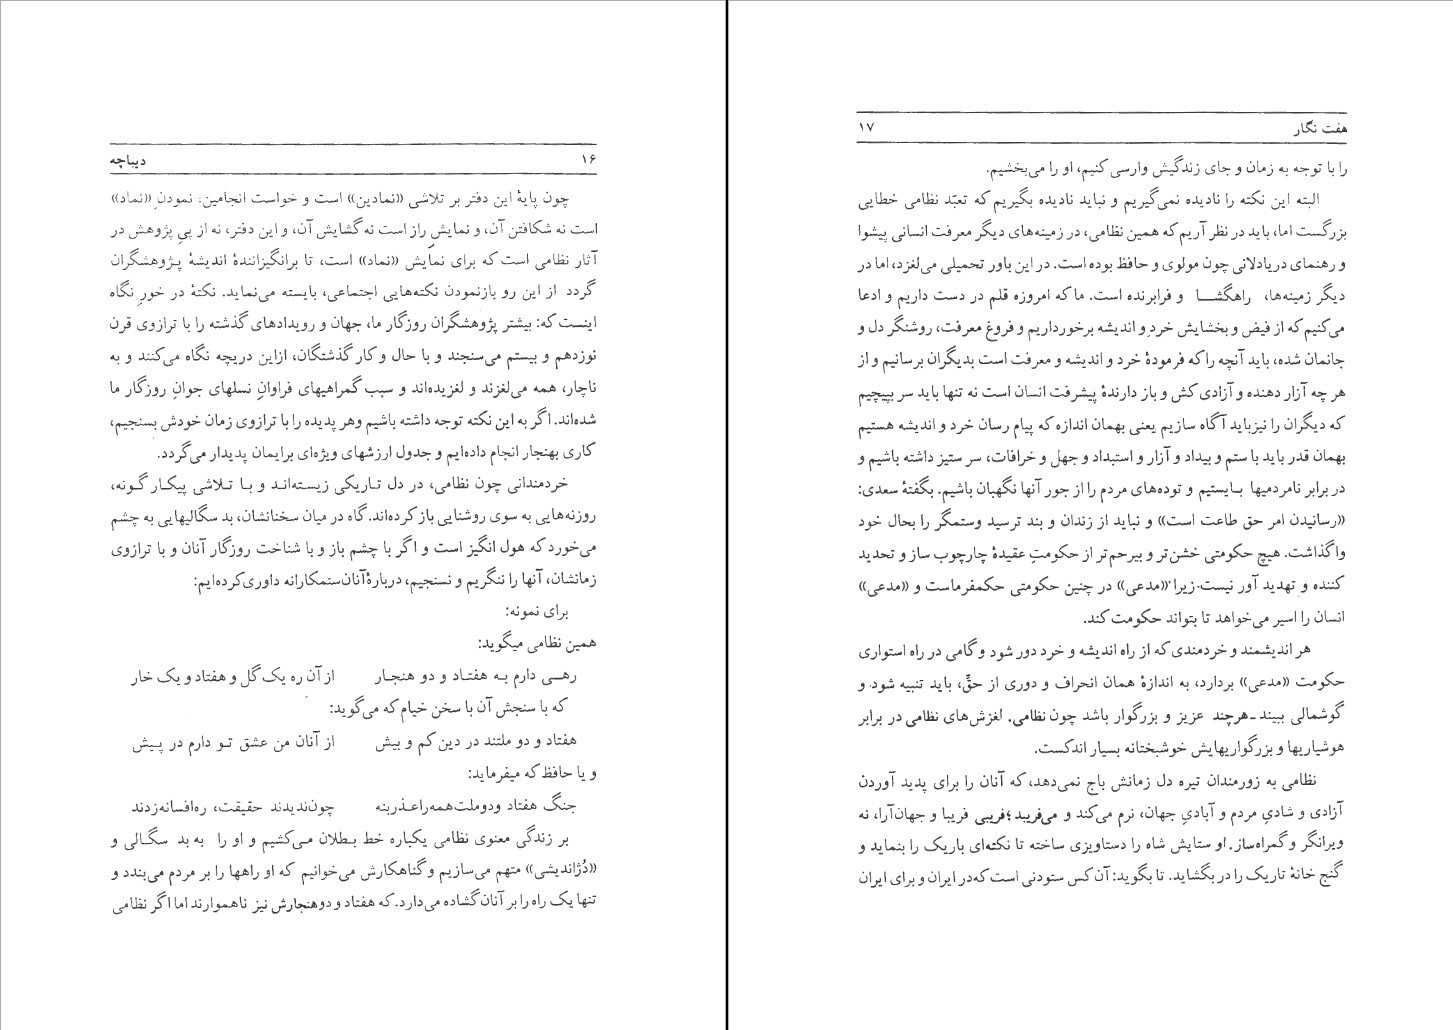 ۱۶ دیباچه
چون پایهٔ این دفتر بر تلاشی «نمادین» است و خواست انجامین: نمودنِ «نماد»
است نه شکافتن آن، و نمایش راز است نه گشایش آن، و این دفتر، نه از پیِ پژوهش در
آثار نظامی است که برای نمایش «نماد» است، تا برانگیزانندهٔ اندیشهٔ پـژوهشگران
گردد از این رو بازنمودن نکته‌هایی اجتماعی، بایسته می‌نماید. نکتهٔ در خورِ نگاه
اینست که: بیشتر پژوهشگران روزگار ما، جهان و رویدادهای گذشته را با ترازوی قرن
نوزدهم و بیستم می‌سنجند و با حال و کار گذشتگان، ازاین دریچه نگاه می‌کنند و به
ناچار، همه می‌لغزند و لغزیده‌اند و سبب گمراهیهای فراوانِ نسلهای جوانِ روزگار ما
شده‌اند. اگر به این نکته توجه داشته باشیم وهر پدیده را با ترازوی زمان خودش بسنجیم،
کاری بهنجار انجام داده‌ایم و جدول ارزشهای ویژه‌ای برایمان پدیدار می‌گردد.
خردمندانی چون نظامی، در دل تـاریکی زیستـه‌انـد و بـا تـلاشی پیکـار گـونه،
روزنه‌هایی به سوی روشنایی باز کرده‌اند. گاه در میان سخنانشان، بد سگالیهایی به چشم
می‌خورد که هول انگیز است و اگر با چشم باز و با شناخت روزگار آنان و با ترازوی
زمانشان، آنها را ننگریم و نسنجیم، دربارهٔ آنان ستمکارانه داوری کرده‌ایم:
برای نمونه:
همین نظامی میگوید:
رهـی دارم بـه هفتـاد و دو هنجـار از آن ره یک گل و هفتاد و یک خار
که با سنجش آن با سخن خیام که می‌گوید:
هفتاد و دو ملتند در دین کم و بیش از آنان من عشق تـو دارم در پـیش
و یا حافظ که میفرماید:
جنگ هفتاد ودو ملت همه را عـذر بنه چون ندیدند حقیقت، ره افسانه زدند
بر زندگی معنوی نظامی یکباره خط بـطلان مـی‌کشیم و او را به بد سگـالی و
«دُژاندیشی» متهم می‌سازیم و گناهکارش می‌خوانیم که او راهها را بر مردم می‌بندد و
تنها یک راه را بر آنان گشاده می‌دارد. که هفتاد و دو هنجارش نیز ناهموارند اما اگر نظامی
هفت نگار ۱۷
را با توجه به زمان و جای زندگیش وارسی کنیم، او را می‌بخشیم.
البته این نکته را نادیده نمی‌گیریم و نباید نادیده بگیریم که تعبّد نظامی خطایی
بزرگست اما، باید در نظر آریم که همین نظامی، در زمینه‌های دیگر معرفت انسانی پیشوا
و رهنمای دریادلانی چون مولوی و حافظ بوده است. در این باور تحمیلی می‌لغزد، اما در
دیگر زمینه‌ها، راهگشـــا و فرابرنده است. ما که امروزه قلم در دست داریم و ادعا
می‌کنیم که از فیض و بخشایش خرد و اندیشه برخورداریم و فروغ معرفت، روشنگر دل و
جانمان شده، باید آنچه را که فرمودهٔ خرد و اندیشه و معرفت است بدیگران برسانیم و از
هر چه آزار دهنده و آزادی کش و باز دارندهٔ پیشرفت انسان است نه تنها باید سر بپیچیم
که دیگران را نیز باید آگاه سازیم یعنی بهمان اندازه که پیام رسان خرد و اندیشه هستیم
بهمان قدر باید با ستم و بیداد و آزار و استبداد و جهل و خرافات، سر ستیز داشته باشیم و
در برابر نامردمیها بـایستیم و توده‌های مردم را از جور آنها نگهبان باشیم. بگفتهٔ سعدی:
«رسانیدن امر حق طاعت است» و نباید از زندان و بند ترسید وستمگر را بحال خود
واگذاشت. هیچ حکومتی خشن‌تر و بیرحم‌تر از حکومتِ عقیدهٔ چارچوب ساز و تحدید
کننده و تهدید آور نیست. زیرا «مدعی» در چنین حکومتی حکمفرماست و «مدعی»
انسان را اسیر می‌خواهد تا بتواند حکومت کند.
هر اندیشمند و خردمندی که از راه اندیشه و خرد دور شود و گامی در راه استواری
حکومت «مدعی» بردارد، به اندازهٔ همان انحراف و دوری از حقّ، باید تنبیه شود و
گوشمالی ببیند ـ هرچند عزیز و بزرگوار باشد چون نظامی. لغزش‌های نظامی در برابر
هوشیاریها و بزرگواریهایش خوشبختانه بسیار اندکست.
نظامی به زورمندان تیره دل زمانش باج نمی‌دهد، که آنان را برای پدید آوردن
آزادی و شادیِ مردم و آبادیِ جهان، نرم می‌کند و می‌فریبد؛ فریبی فریبا و جهان‌آرا، نه
ویرانگر و گمراه‌ساز. او ستایش شاه را دستاویزی ساخته تا نکته‌ای باریک را بنماید و
گنج خانهٔ تاریک را در بگشاید. تا بگوید: آن کس ستودنی است که در ایران و برای ایران